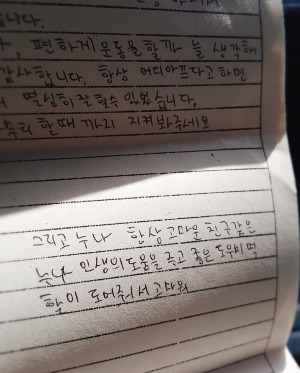 니다.
, 편하게 운동을 할까 늘 생각해
감사합니다. 항상 어디아프다고 하면
열심히 잘 할수 있었습니다.
할때 까지 지켜봐주세요
그리고 누나 항상 고마운 친구같은
누나 인생의 도움을 주고 좋은 도우미 역
할이 되어줘서 고마워